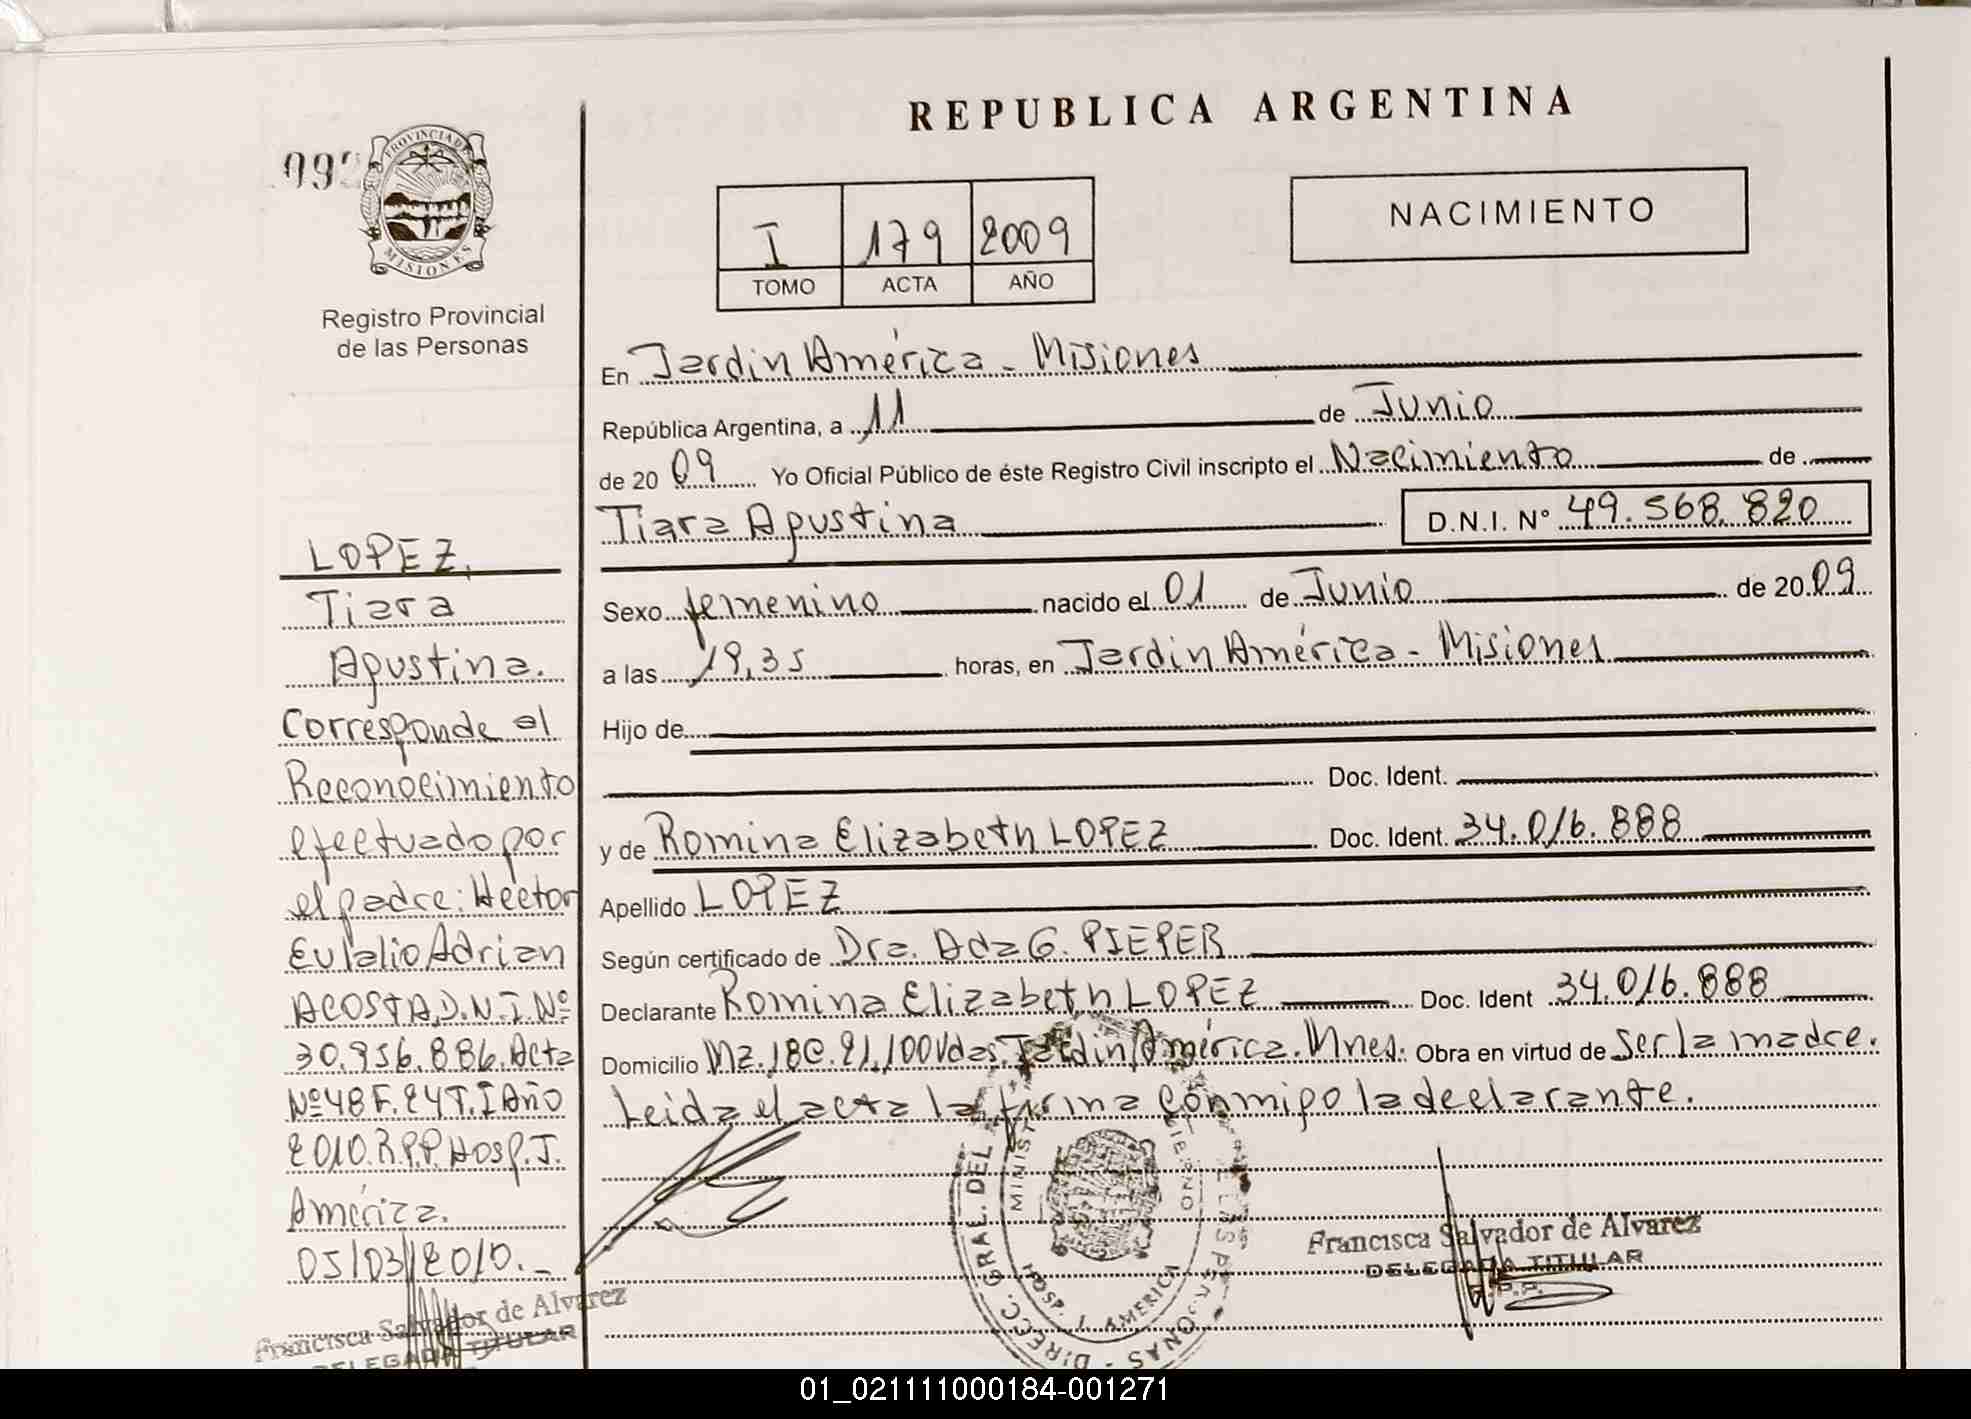 REPUBLICA ARGENTINA
PROVINCIA DE
MISIONES
Registro Provincial
de las Personas
I 179 2009
TOMO ACTA AÑO
NACIMIENTO
En Jardin América - Misiones
República Argentina, a 11 de Junio
de 2009 Yo Oficial Público de éste Registro Civil inscripto el Nacimiento de
Tiara Agustina D.N.I. Nº 49.568.820
Sexo femenino nacido el 01 de Junio de 2009
a las 19,35 horas, en Jardin América - Misiones
Hijo de
Doc. Ident.
y de Romina Elizabeth LOPEZ Doc. Ident. 34.016.888
Apellido LOPEZ
Según certificado de Dra. Ada G. PIEPER
Declarante Romina Elizabeth LOPEZ Doc. Ident 34.016.888
Domicilio Mz. 18 C. 21, 100 Vdas, Jardin América. Mnes. Obra en virtud de ser la madre.
Leida el acta la firma conmigo la declarante.
LOPEZ,
Tiara
Agustina.
Corresponde al
Reconocimiento
efectuado por
el padre: Hector
Eulalio Adrian
ACOSTA, D.N.I. Nº
30.956.886. Acta
Nº 48 F. 24 T. I Año
2010. R.P.P. Hosp. J.
América.
05/03/2010.-
Francisca Salvador de Alvarez
DELEGADA TITULAR
DIRECC. GRAL. DEL
HOSP. J. AMERICA
Francisca Salvador de Alvarez
DELEGADA TITULAR
R.P.P.
01_021111000184-001271